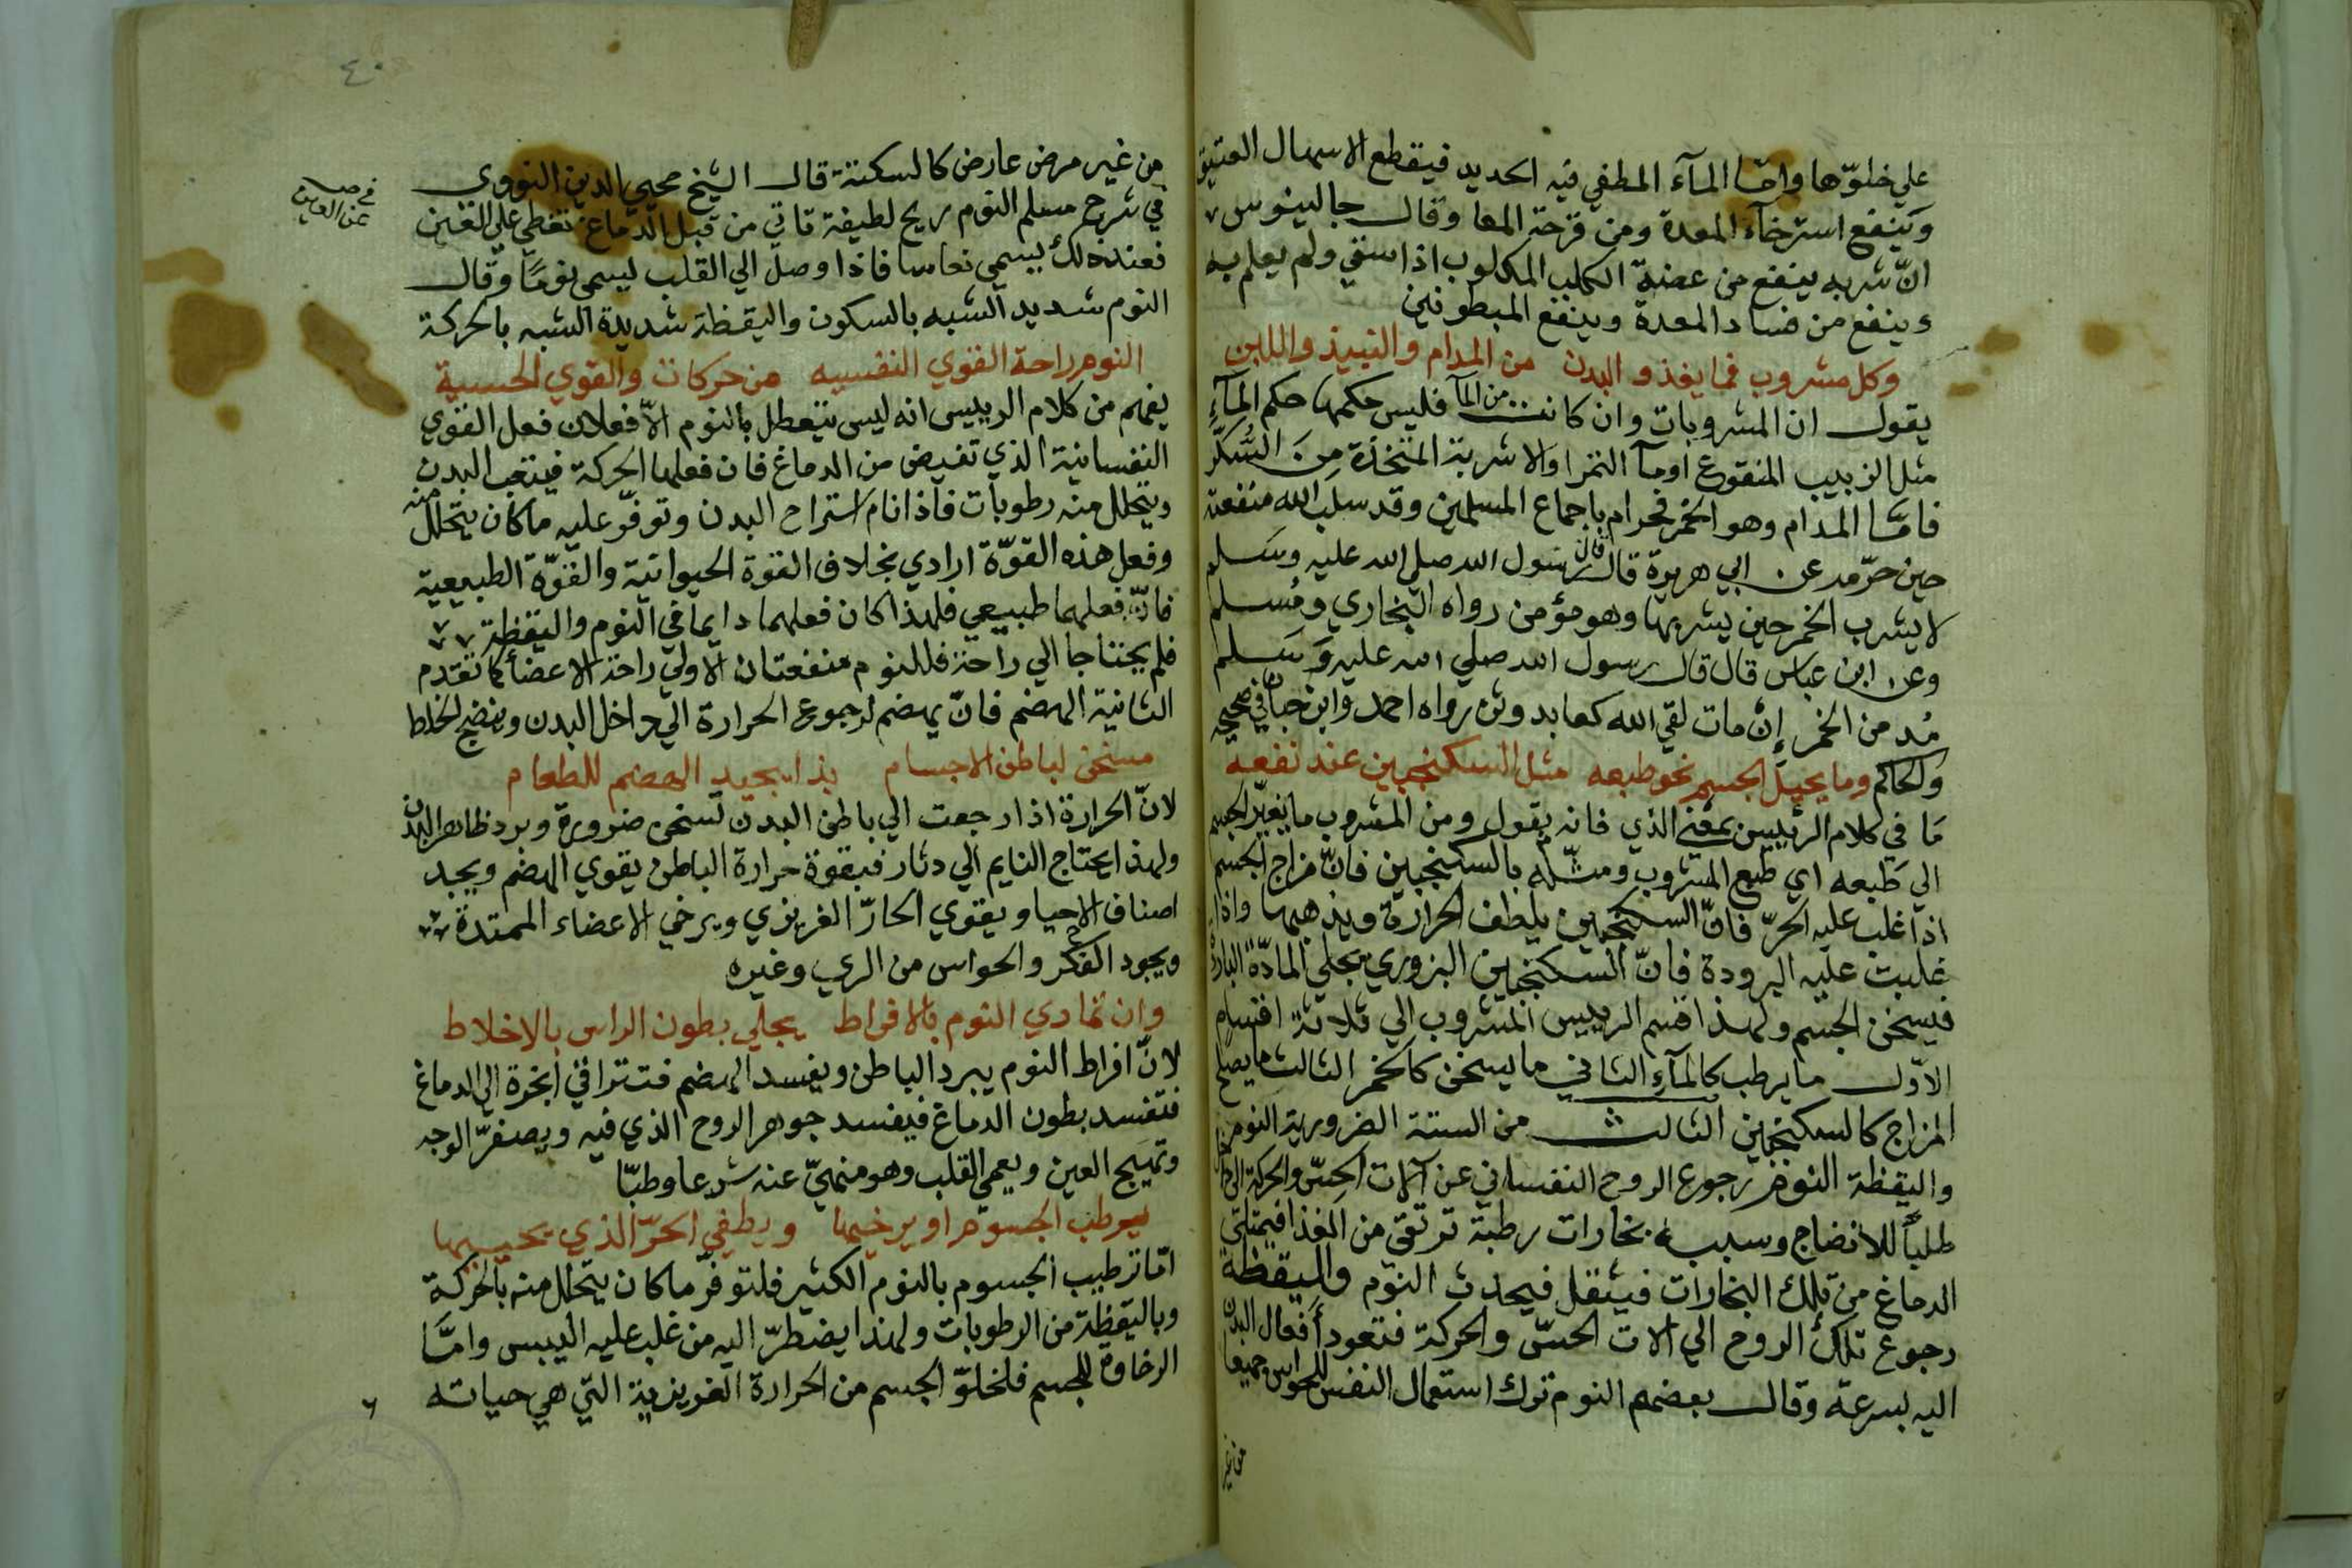 علي خلوّها وامّا المآء المطفي فيه الحديد فيقطع الاسهال العتيق
وينفع استرخآء المعدة ومن قرحة المعا وقال جالينوس
انّ شربه ينفع من عضة الكلب المكلوب اذا سقي ولم يعلم به
وينفع من فساد المعدة وينفع المبطونين
وكل مشروب فما يغذو البدن من المدام والنبيذ واللبن
يقول ان المشروبات وان كانت من المآ فليس حكمها حكم المآء
مثل الزبيب المنقوع اومآ التمر اوالاشربة المتخذة من السُّكّر
فامّا المدام وهو الخمر فحرام باجماع المسلمين وقد سلب الله منفعته
حين حرّمه عن ابي هريرة قال قال رسول الله صلي الله عليه وسلم
لا يشرب الخمر حين يشربها وهو مؤمن رواه البخاري ومُسلم
وعن ابن عباس قال قال رسول الله صلي الله عليه وَسَلم
مُدمن الخمر إنْ مات لقي الله كعابد وثن رواه احمد وابن حبان في صحيحه
والحاكم وما يحيل الجسم نحو طبعه مثل السكنجبين عند نفعه
مَا في كلام الرئيس بمعني الذي فانه يقول ومن المشروب ما يغيّر الجسم
الي طَبعه اي طبع المشروب ومثّله بالسكنجبين فانّ مزاج الجسم
اذا غلب عليه الحرّ فانّ السكنجبين يلطف الحرارة ويذهبها واذا
غلبت عليه البرودة فانّ السكنجبين البزوري يجلي المادّة الباردة
فيسخن الجسم ولهذا قسم الرييس المشروب الي ثلاثة اقسام
الاوّل ما يرطب كالمآء الثاني ما يسخن كالخمر الثالث ما يصلح
المزاج كالسكنجبين الثالث من الستة الضرورية النوم
واليقظة النوم رجوع الروح النفساني عن آلات الحسّ والحركة الي داخل
طلباً للانضاج وسببه بخارات رطبة ترتقي من الغذا فيمتلي
الدماغ من تلك البخارات فيثقل فيحدث النوم واليقظة
رجوع تلك الروح الي الات الحسّ والحركة فتعود أفعال البدن
اليه بسرعة وقال بعضهم النوم ترك استعمال النفس للحواس جميعا
من غير
٤٠
من غير مرض عارض كالسكتة قال الشيخ محيي الدين النووي
في شرح مسلم النوم ريح لطيفة تاتي من قبل الدماغ تغطي علي العين
فعند ذلك يسمي نعاسا فاذا وصل الي القلب يسمي نومًا وقال
النوم شديد الشبه بالسكون واليقظة شديدة الشبه بالحركة
النوم راحة القوي النفسيه من حركات والقوي الحسية
يفهم من كلام الرييس انه ليس يتعطل بالنوم الّا فعلان فعل القوي
النفسانية الذي تفيض من الدماغ فان فعلها الحركة فيتعب البدن
ويتحلل منه رطوبات فاذا نام استراح البدن وتوفّر عليه ما كان يتحلل منه
وفعل هذه القوّة ارادي بخلاف القوة الحيوانية والقوّة الطبيعية
فانّ فعلهما طبيعي فلهذا كان فعلهما دايما في النوم واليقظة
فلم يحتاجا الي راحة فللنوم منفعتان الاولي راحة الاعضاء كما تقدم
الثانية الهضم فانّ يهضم لرجوع الحرارة الي داخل البدن وينضج الخلط
مسخن لباطن الاجسام بذا يجيد الهضم للطعام
لانّ الحرارة اذا رجعت الي باطن البدن تسخن ضرورة وبرد ظاهر البدن
ولهذا يحتاج النايم الي دثار فبقوة حرارة الباطن يقوي الهضم ويجيد
اصناف الاحيا ويقوي الحارّ الغريزي ويرخي الاعضاء الممتدة
ويجود الفكر والحواس من الري وغيره
وان تمادي النوم بالافراط يجلي بطون الراس بالاخلاط
لانّ افراط النوم يبرد الباطن ويفسد الهضم فتتراقي ابخرة الي الدماغ
فتفسد بطون الدماغ فيفسد جوهر الروح الذي فيه ويصفرّ الوجه
وتهيج العين ويعمي القلب وهو منهيّ عنه شرعا وطبّا
يرطب الجسوم او يرخيها ويطفي الحرّ الذي يحييها
امّا ترطيب الجسوم بالنوم الكثير فلتوفر ما كان يتحلل منه بالحركة
وباليقظة من الرطوبات ولهذا يضطرّ اليه من غلب عليه اليبس وامَّا
الرخاوة للجسم فلخلوّ الجسم من الحرارة الغريزية التي هي حياته